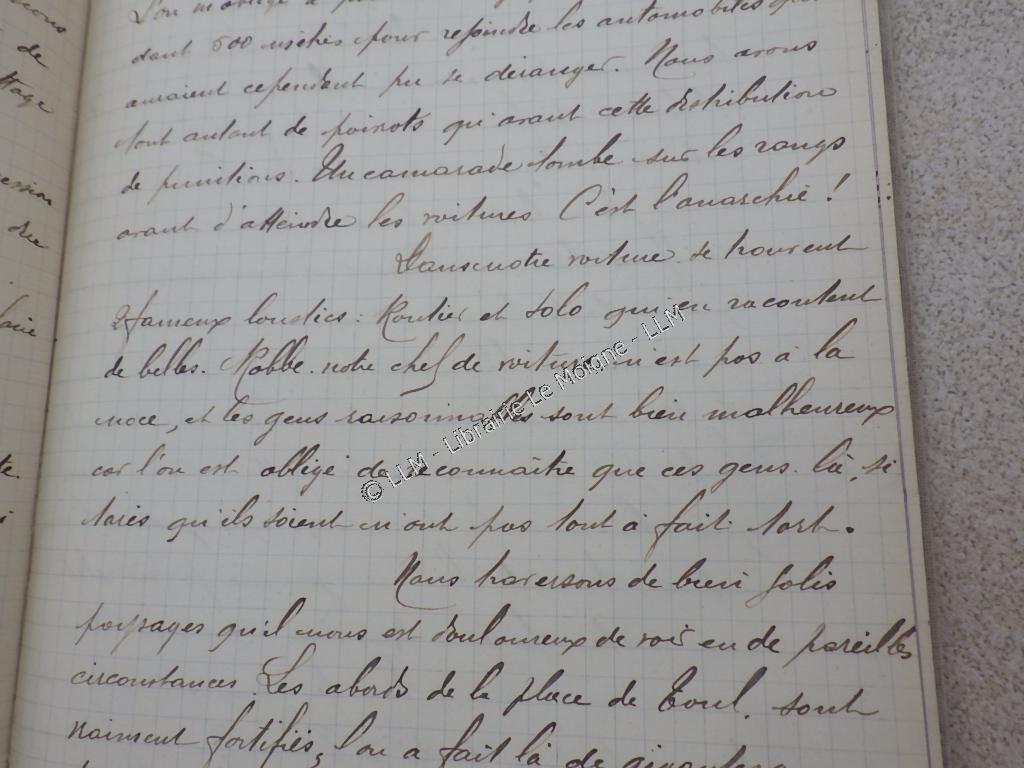 L'on m'oblige à
dant 500 mètres pour rejoindre les automobiles qui
auraient cependant pu se déranger. Nous avons
tout autant de poivots qu'avant cette distribution
de punitions. Un camarade tombe sur les rangs
avant d'atteindre les voitures C'est l'anarchie !
Dans notre voiture se trouvent
2 fameux loustics : Routier et Solo qui en racontent
de belles. Rabbe. notre chef de voiture n'est pas à la
noce, et les gens raisonnables sont bien malheureux
car l'on est obligé de reconnaître que ces gens là, si
tarés qu'ils soient n'ont pas tout à fait tort.
Nous traversons de bien jolis
paysages qu'il nous est douloureux de voir en de pareilles
circonstances. Les abords de la place de Toul. sont
vraiment fortifiés, l'on a fait là de
de
ttage
du
© LLM - Librairie Le Moigne - LLM